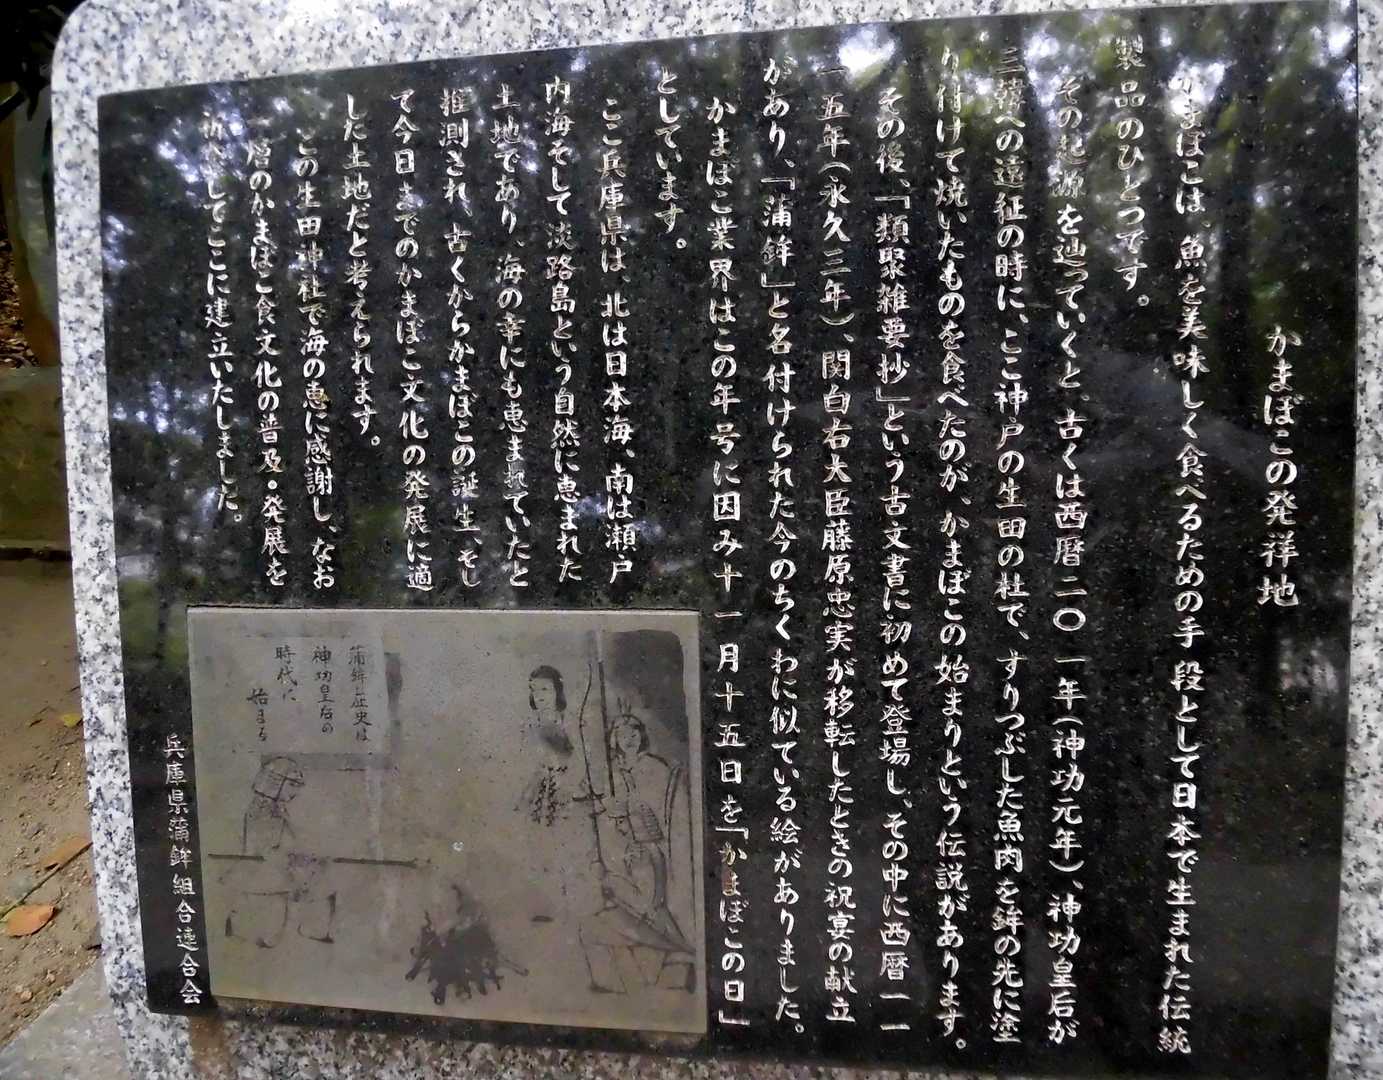 かまぼこの発祥地
かまぼこは、魚を美味しく食べるための手段として日本で生まれた伝統
製品のひとつです。
その起源を辿っていくと、古くは西暦二〇一年(神功元年)、神功皇后が
三韓への遠征の時に、ここ神戸の生田の杜で、すりつぶした魚肉を鉾の先に塗
り付けて焼いたものを食べたのが、かまぼこの始まりという伝説があります。
その後、「類聚雑要抄」という古文書に初めて登場し、その中に西暦一一
一五年(永久三年)、関白右大臣藤原忠実が移転したときの祝宴の献立
があり、「蒲鉾」と名付けられた今のちくわに似ている絵がありました。
かまぼこ業界はこの年号に因み十一月十五日を「かまぼこの日」
としています。
ここ兵庫県は、北は日本海、南は瀬戸
内海そして淡路島という自然に恵まれた
土地であり、海の幸にも恵まれていたと
推測され、古くからかまぼこの誕生、そし
て今日までのかまぼこ文化の発展に適
した土地だと考えられます。
この生田神社で海の恵に感謝し、なお
一層のかまぼこ食文化の普及・発展を
祈念してここに建立いたしました。
蒲鉾の歴史は
神功皇后の
時代に
始まる
兵庫県蒲鉾組合連合会